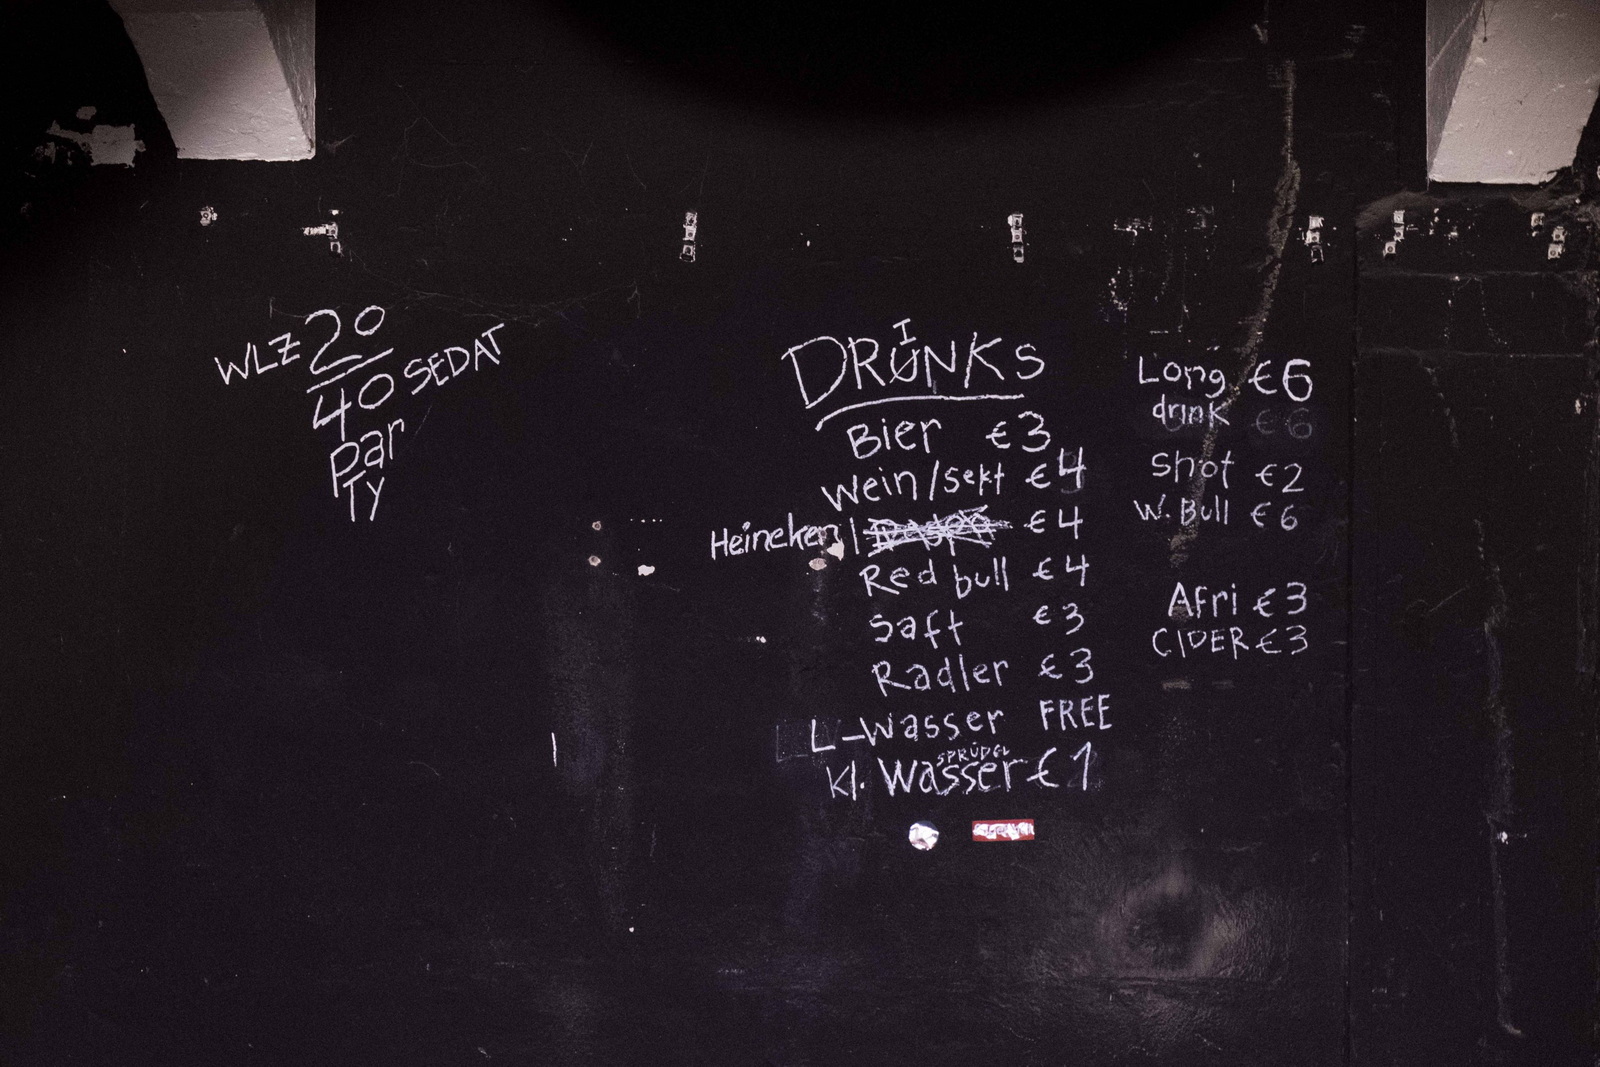 WLZ 20
40 SEDAT
par
Ty
DRINKs
Bier €3
Wein/Sekt €4
Heineken | €4
Red bull €4
Saft €3
Radler €3
L-Wasser FREE
SPRÜDEL
Kl. Wasser €1
Long €6
drink €6
Shot €2
W. Bull €6
Afri €3
CIDER €3